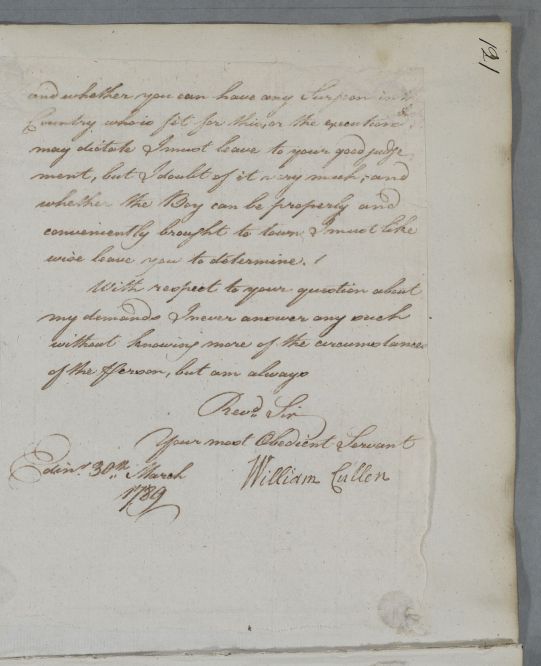 121
and whether you can have any Surgeon in the
Country who is fit for this, or the execution
may dictate I must leave to your good judge
ment, but I doubt of it very much; and
whether the Boy can be properly and
conveniently brought to town I must like
wise leave you to determine.
With respect to your question about
my demands I never answer any such
without knowing more of the circumstances
of the Person, but am always
Revd. Sir
Your most Obedient Servant
William Cullen
Edinr. 30th. March
1789